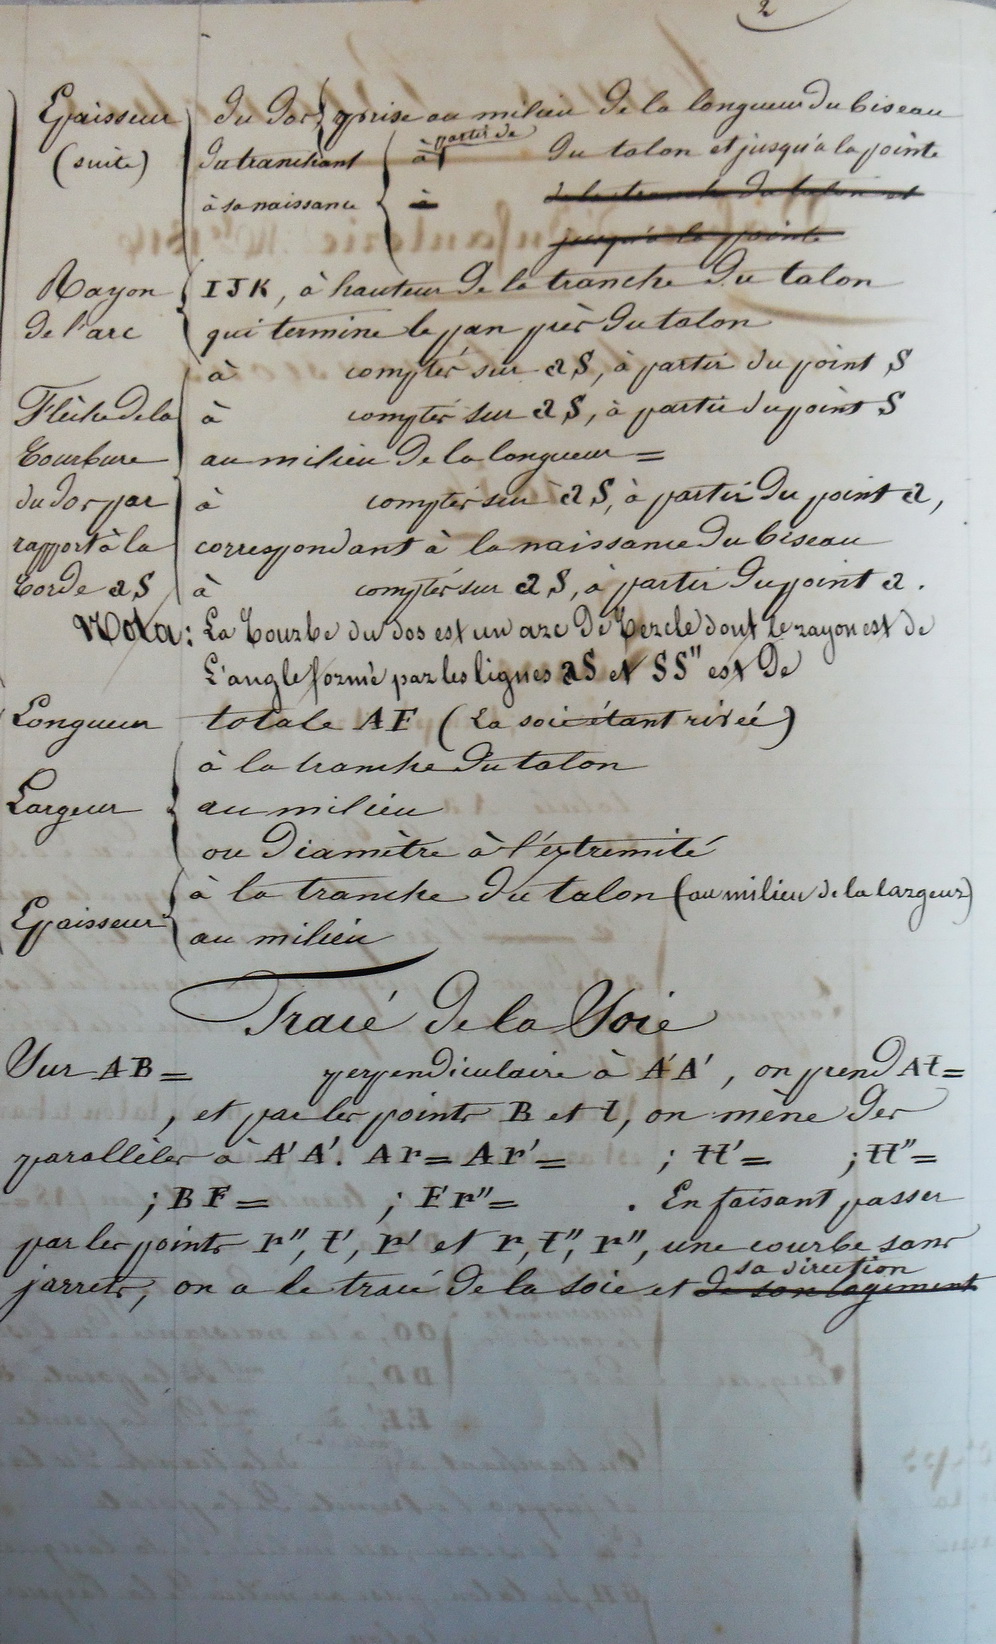 2
Epaisseur du dos, prise au milieu de la longueur du biseau
(suite) du tranchant à partir de du talon et jusqu'à la pointe
à sa naissance à de la tranche du talon et
jusqu'à la pointe
Rayon IJK, à hauteur de la tranche du talon
de l'arc qui termine le pan près du talon
à comptés sur aS, à partir du point S
Flèche de la à comptés sur aS, à partir du point S
Courbure au milieu de la longueur =
du dos par à comptés sur aS, à partir du point a,
rapport à la correspondant à la naissance du biseau
Corde aS à comptés sur aS, à partir du point a.
Nota: La Courbe du dos est un arc de Cercle dont le rayon est de
L'angle formé par les lignes aS et SS" est de
Longueur totale AF (la soie étant rivée)
à la tranche du talon
Largeur au milieu
ou Diamètre à l'extremité
à la tranche du talon (au milieu de la largeur)
Epaisseur au milieu
Tracé de la Soie
Sur AB= perpendiculaire à A'A', on prend At=
, et par les points B et t, on mène des
parallèles à A'A'. Ar=Ar'= ; tt'= ; tt"=
; BF= ; Fr"= . En faisant passer
par les points r", t', r' et r, t", r", une courbe sans
jarrets, on a le tracé de la soie et sa direction de son logement